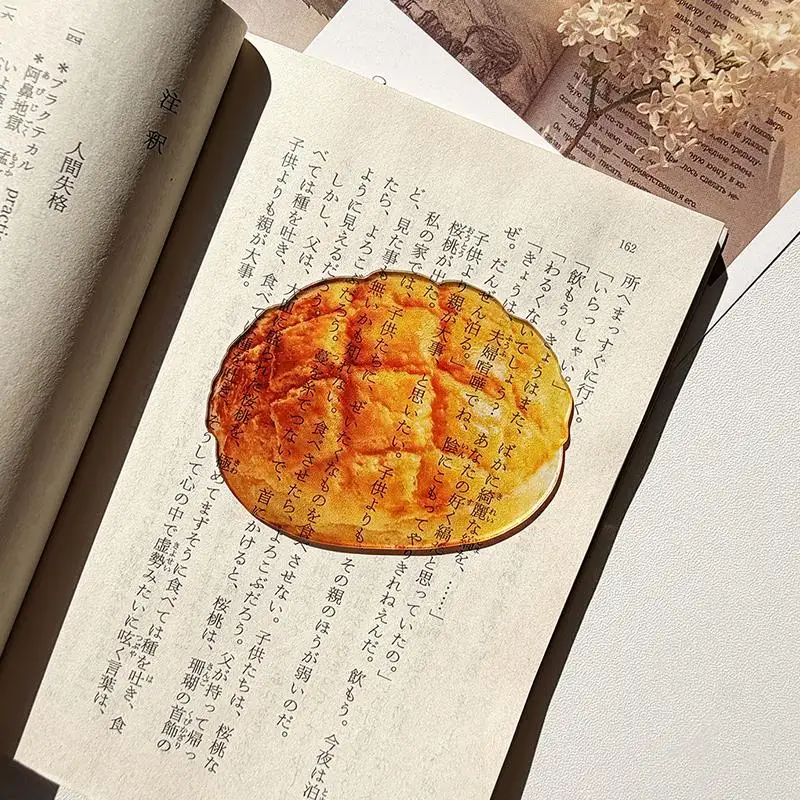 162
所へまっすぐに行く。
「いらっしゃい。」
「飲もう。きょうはまた、ばかに綺麗な縞を、……」
「わるくないでしょう？　あなたの好く縞だと思っていたの。」
「きょうは、夫婦喧嘩でね、陰にこもってやりきれねえんだ。飲もう。今夜は泊
ぜ。だんぜん泊る。」
子供より親が大事、と思いたい。子供よりも、その親のほうが弱いのだ。
桜桃が出た。
私の家では、子供たちに、ぜいたくなものを食べさせない。子供たちは、桜桃な
ど、見た事も無いかも知れない。食べさせたら、よろこぶだろう。父が持って帰っ
たら、よろこぶだろう。蔓を糸でつないで、首にかけると、桜桃は、珊瑚の首飾の
ように見えるだろう。
しかし、父は、大皿に盛られた桜桃を、極めてまずそうに食べては種を吐き、食
べては種を吐き、食べては種を吐き、そうして心の中で虚勢みたいに呟く言葉は、
子供よりも親が大事。
注釈
人間失格
一四 *プラクテカル
*阿鼻地獄
一六